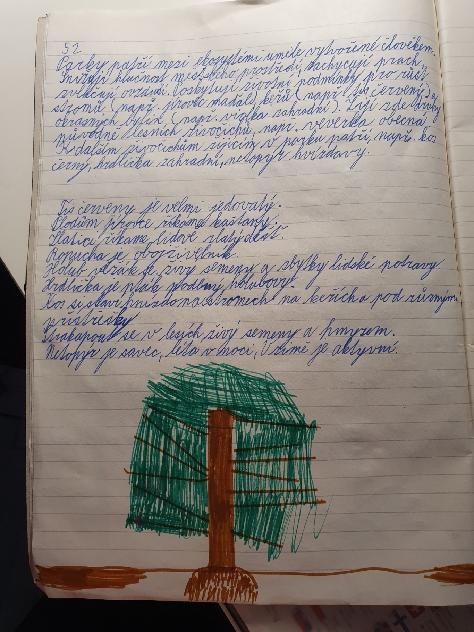 52
Parky patří mezi ekosystémy uměle vytvořené člověkem.
Snižují hlučnost městského prostředí, zachycují prach,
zvlhčují ovzduší. Poskytují životní podmínky pro růst
stromů (např. jírovce maďalů), keřů (např. tis červený) a
okrasných bylin (např. violka zahradní). Žijí zde druhy
původně lesních živočichů, např. veverka obecná
K dalším živočichům žijícím v parku patří, např. kos
černý, hrdlička zahradní, netopýr hvízdavý.
Tis červený je velmi jedovatý.
Plodům jírovce říkáme kaštany.
Zlatici říkáme lidově zlatý déšť.
Ropucha je obojživelník.
Holub věžák se živý semeny a zbytky lidské potravy
Hrdlička je pták podobný holubovy.
Kos si staví hnízdo na stromech na keřích a pod různým
přístřešky
Strakapoud se v lesích živý semeny a hmyzem.
Netopýr je savec, létá v noci, V zimě je aktyvní.